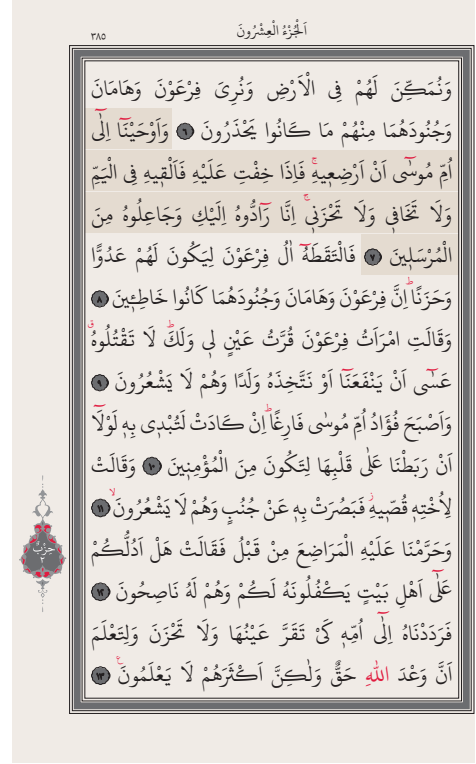 اَلْجُزْءُ الْعِشْرُونَ
٣٨٥
وَنُمَكِّنَ لَهُمْ فِى الْاَرْضِ وَنُرِىَ فِرْعَوْنَ وَهَامَانَ
وَجُنُودَهُمَا مِنْهُمْ مَا كَانُوا يَحْذَرُونَ ٦ وَاَوْحَيْنَٓا اِلٰٓى
اُمِّ مُوسٰٓى اَنْ اَرْضِعٖيهِۚ فَاِذَا خِفْتِ عَلَيْهِ فَاَلْقٖيهِ فِى الْيَمِّ
وَلَا تَخَافٖى وَلَا تَحْزَنٖىۚ اِنَّا رَٓادُّوهُ اِلَيْكِ وَجَاعِلُوهُ مِنَ
الْمُرْسَلٖينَ ٧ فَالْتَقَطَهُٓ اٰلُ فِرْعَوْنَ لِيَكُونَ لَهُمْ عَدُوًّا
وَحَزَنًاؕ اِنَّ فِرْعَوْنَ وَهَامَانَ وَجُنُودَهُمَا كَانُوا خَاطِـٖٔينَ ٨
وَقَالَتِ امْرَاَتُ فِرْعَوْنَ قُرَّتُ عَيْنٍ لٖى وَلَكَؕ لَا تَقْتُلُوهُۗ
عَسٰٓى اَنْ يَنْفَعَنَٓا اَوْ نَتَّخِذَهُ وَلَدًا وَهُمْ لَا يَشْعُرُونَ ٩
وَاَصْبَحَ فُؤَادُ اُمِّ مُوسٰى فَارِغًاؕ اِنْ كَادَتْ لَتُبْدٖى بِهٖ لَوْلَٓا
اَنْ رَبَطْنَا عَلٰى قَلْبِهَا لِتَكُونَ مِنَ الْمُؤْمِنٖينَ ١٠ وَقَالَتْ
لِاُخْتِهٖ قُصّٖيهِؗ فَبَصُرَتْ بِهٖ عَنْ جُنُبٍ وَهُمْ لَا يَشْعُرُونَۙ ١١
وَحَرَّمْنَا عَلَيْهِ الْمَرَاضِعَ مِنْ قَبْلُ فَقَالَتْ هَلْ اَدُلُّكُمْ
عَلٰٓى اَهْلِ بَيْتٍ يَكْفُلُونَهُ لَكُمْ وَهُمْ لَهُ نَاصِحُونَ ١٢
فَرَدَدْنَاهُ اِلٰٓى اُمِّهٖ كَىْ تَقَرَّ عَيْنُهَا وَلَا تَحْزَنَ وَلِتَعْلَمَ
اَنَّ وَعْدَ اللّٰهِ حَقٌّ وَلٰكِنَّ اَكْثَرَهُمْ لَا يَعْلَمُونَࣖ ١٣
حِزْبْ